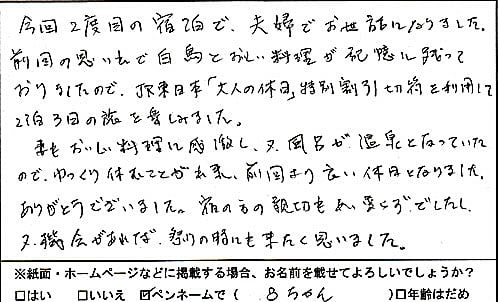 今回2度目の宿泊で、夫婦でお世話になりました。
前回の思い出で白鳥とおいしい料理が記憶に残って
おりましたので、JR東日本「大人の休日」特別割引切符を利用して
2泊3日の旅を楽しみました。
妻もおいしい料理に感激し、又、風呂が温泉となっていた
ので、ゆっくり休むことが出来、前回より良い休日となりました。
ありがとうございました。宿の方の親切も変らずでしたし、
又、機会があれば、祭りの時にも来たく思いました。
※紙面・ホームページなどに掲載する場合、お名前を載せてよろしいでしょうか？
□はい □いいえ ☑ペンネームで（ 8ちゃん ）□年齢はだめ